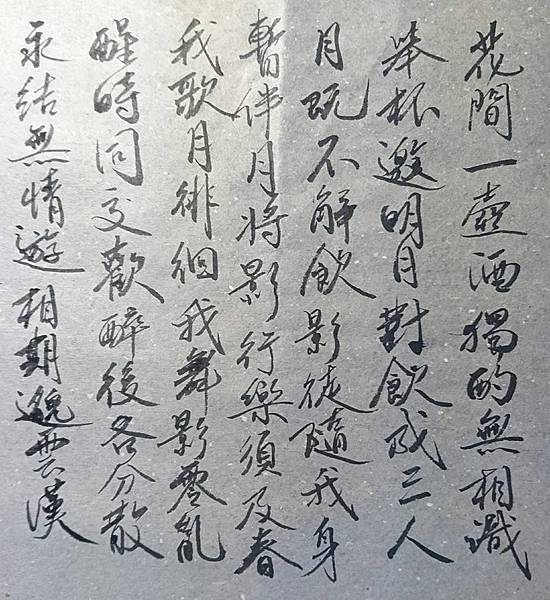 花間一壺酒獨酌無相識
舉杯邀明月對飲成三人
月既不解飲影徒隨我身
暫伴月將影行樂須及春
我歌月徘徊我舞影零亂
醒時同交歡醉後各分散
永結無情遊相期邈雲漢